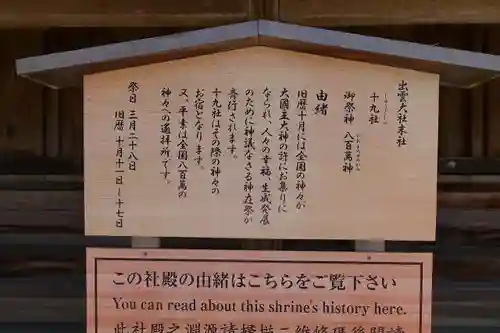 出雲大社末社
十九社
御祭神 八百萬神
由緒
旧暦十月には全国の神々が
大國主大神の許にお集りに
なられ、人々の幸福、生成発展
のために神議なさる神在祭が
奉行されます。
十九社はその際の神々の
お宿となります。
又、平素は全国八百萬の
神々への遙拝所です。
祭日 三月二十八日
旧暦 十月十一日〜十七日
この社殿の由緒はこちらをご覧下さい
You can read about this shrine's history here.